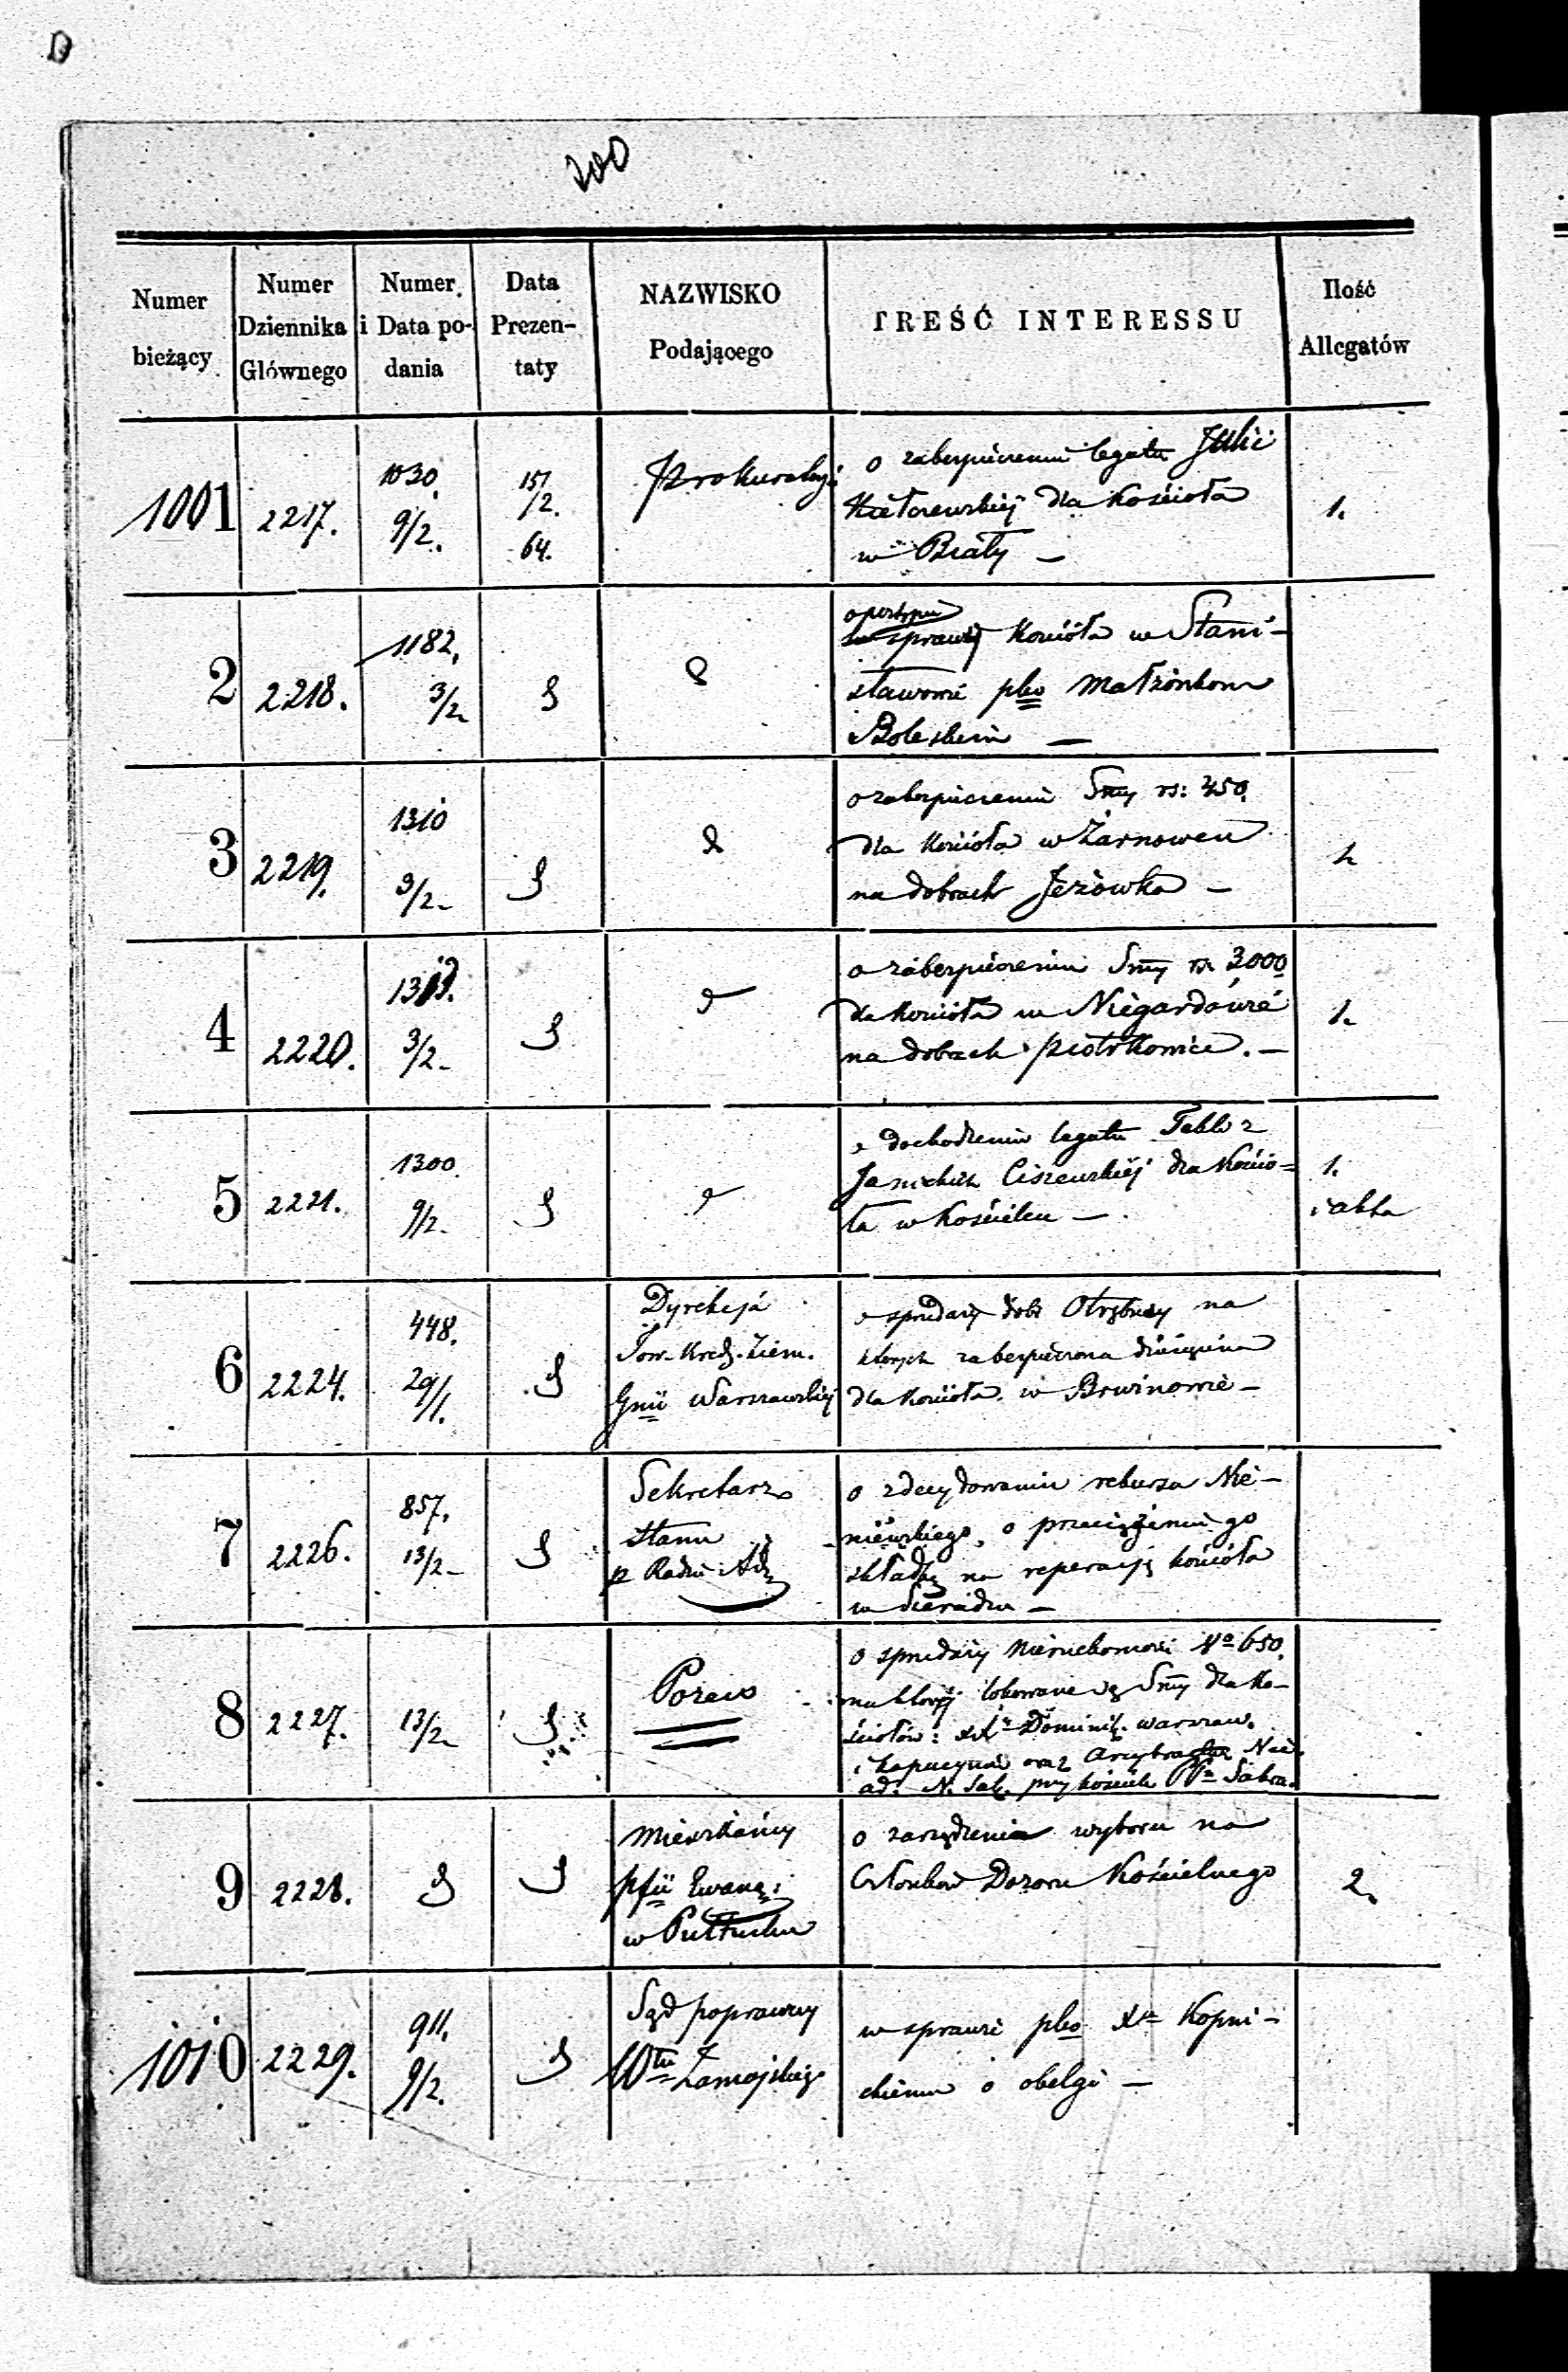 200
Numer bieżący
Numer Dziennika Głównego
Numer i Data podania
Data Prezentaty
NAZWISKO Podającego
TREŚĆ INTERESSU
Ilość Allegatów
1001
2217.
1030
9/2.
15/
/2.
64.
Prokuratorja
o zabezpieczenie legatu Julii
dla Kościoła
w Biały —
1.
2
2218.
1182.
3/2
w sprawie Kościoła w Stani-
sławowie pko Małżonkom
Boleskim —
3
2219.
1310
3/2-
o zabezpieczenie Smy rs: 450.
dla Kościoła w Żarnowcu
na dobrach Jeżówka —
4
2220.
3/2-
o zabezpieczenie Smy rs 3000
dla Kościoła w Niegardowie
na dobrach Piotrkowice. —
1.
5
2221.
1300
9/2-
o dochodzenie legatu Tekli z
Janickich Ciszewskiej dla Kościo=
ła w Kościelcu —
1.
i akta
6
2224.
448.
29/1.
Dyrekcja
Tow. Kred. Ziem.
Gnii Warszawskiej
o sprzedaży dóbr Otrębusy na
których zabezpieczona dziesięcina
dla Kościoła w Brwinowie —
7
2226.
857.
13/2-
Sekretarz
Stanu
p Radzie Adm
o zdecydowanie rekursu Nie-
niewskiego, o przeciążenie go
składką na reperacją kościoła
w Sieradzu —
8
2227.
13/2
o sprzedaży Nieruchomości No 650.
na której lokowane są Smy dla Ko-
ściołów: XX Dominik. warszaw.
i Kapucynów oraz Arcybractw Nie.
ad. N. Sak. przy kościele PP Sakra.
9
2228.
Mieszkańcy
pfii Ewang:
w Pułtusku
o zarządzenie wyboru na
Członków Dozoru Kościelnego
2.
1010
2229.
911.
9/2.
Sąd poprawczy
Wtu Zamojskiego
w sprawie pko Xu Kopni-
ckiemu o obelgi —